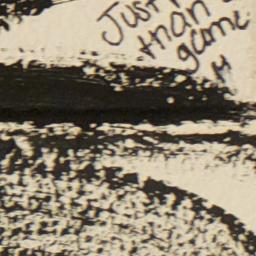 Just
than
game